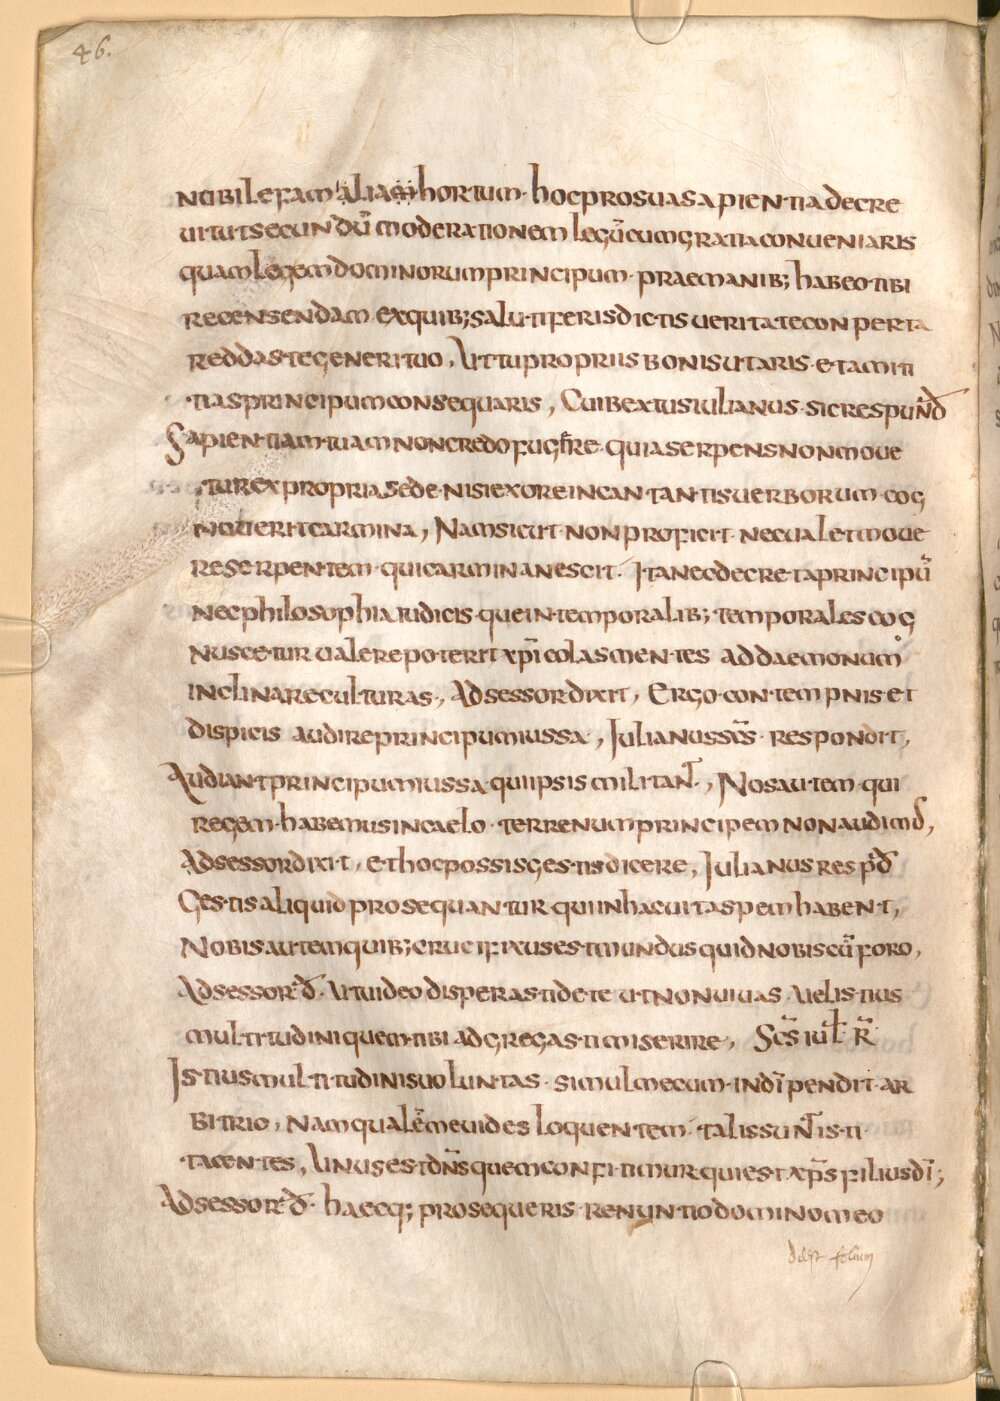 46.
nobile familiam hortum· hoc pro sua sapientia decre
uitut secundū moderationem legū cum gratia conueniaris
quam legem dominorum principum· prae manib; habeo tibi
recensendam ex quib; salutiferis dictis ueritate conperta
reddas te generi tuo, Ut tu propriis bonis utaris· et amiti
tias principum consequaris, Cui bextus iulianus· sic respund̄
Sapientiam tuam non credo fugere· quia serpens non moue
tur ex propria sede· nisi ex ore incantantis uerborum cog
nouerit carmina, Nam sicut non proficit· nec ualet moue
re serpentem· qui carmina nescit· Ita nec decreta principū
nec philosophia iudicis· que in temporalib; temporales cog
nuscetur ualere poterit xp̄icolas mentes ad daemonum
inclinare culturas, Adsessor dixit, Ergo contempnis et
dispicis audire principum iussa, Iulianus sc̄s· respondit,
Audiant principum iussa· qui ipsis militant, Nos autem qui
regem habemus in caelo· terrenum principem non audimus,
Adsessor dixit· et hoc possis gestis dicere, Iulianus resp̄d̄
Gestis aliquid prosequantur· qui in hac uita spem habent,
Nobis autem quib; crucifixus est mundus quid nobis cū foro,
Adsessor d̄· Ut uideo disperasti de te ut non uiuas· uel istius
multitudini quem tibi adgregasti miserire, Sc̄s iul̄ r̄
Istius multitudinis uoluntas· simul mecum· in dī pendit ar
bitrio, Nam qualem me uides loquentem· tales sunt isti
tacentes, Unus est dn̄s quem confitimur qui est xp̄s filius dī;
Adsessor d̄· haec q; prosequeris renuntio domino meo
deest folium